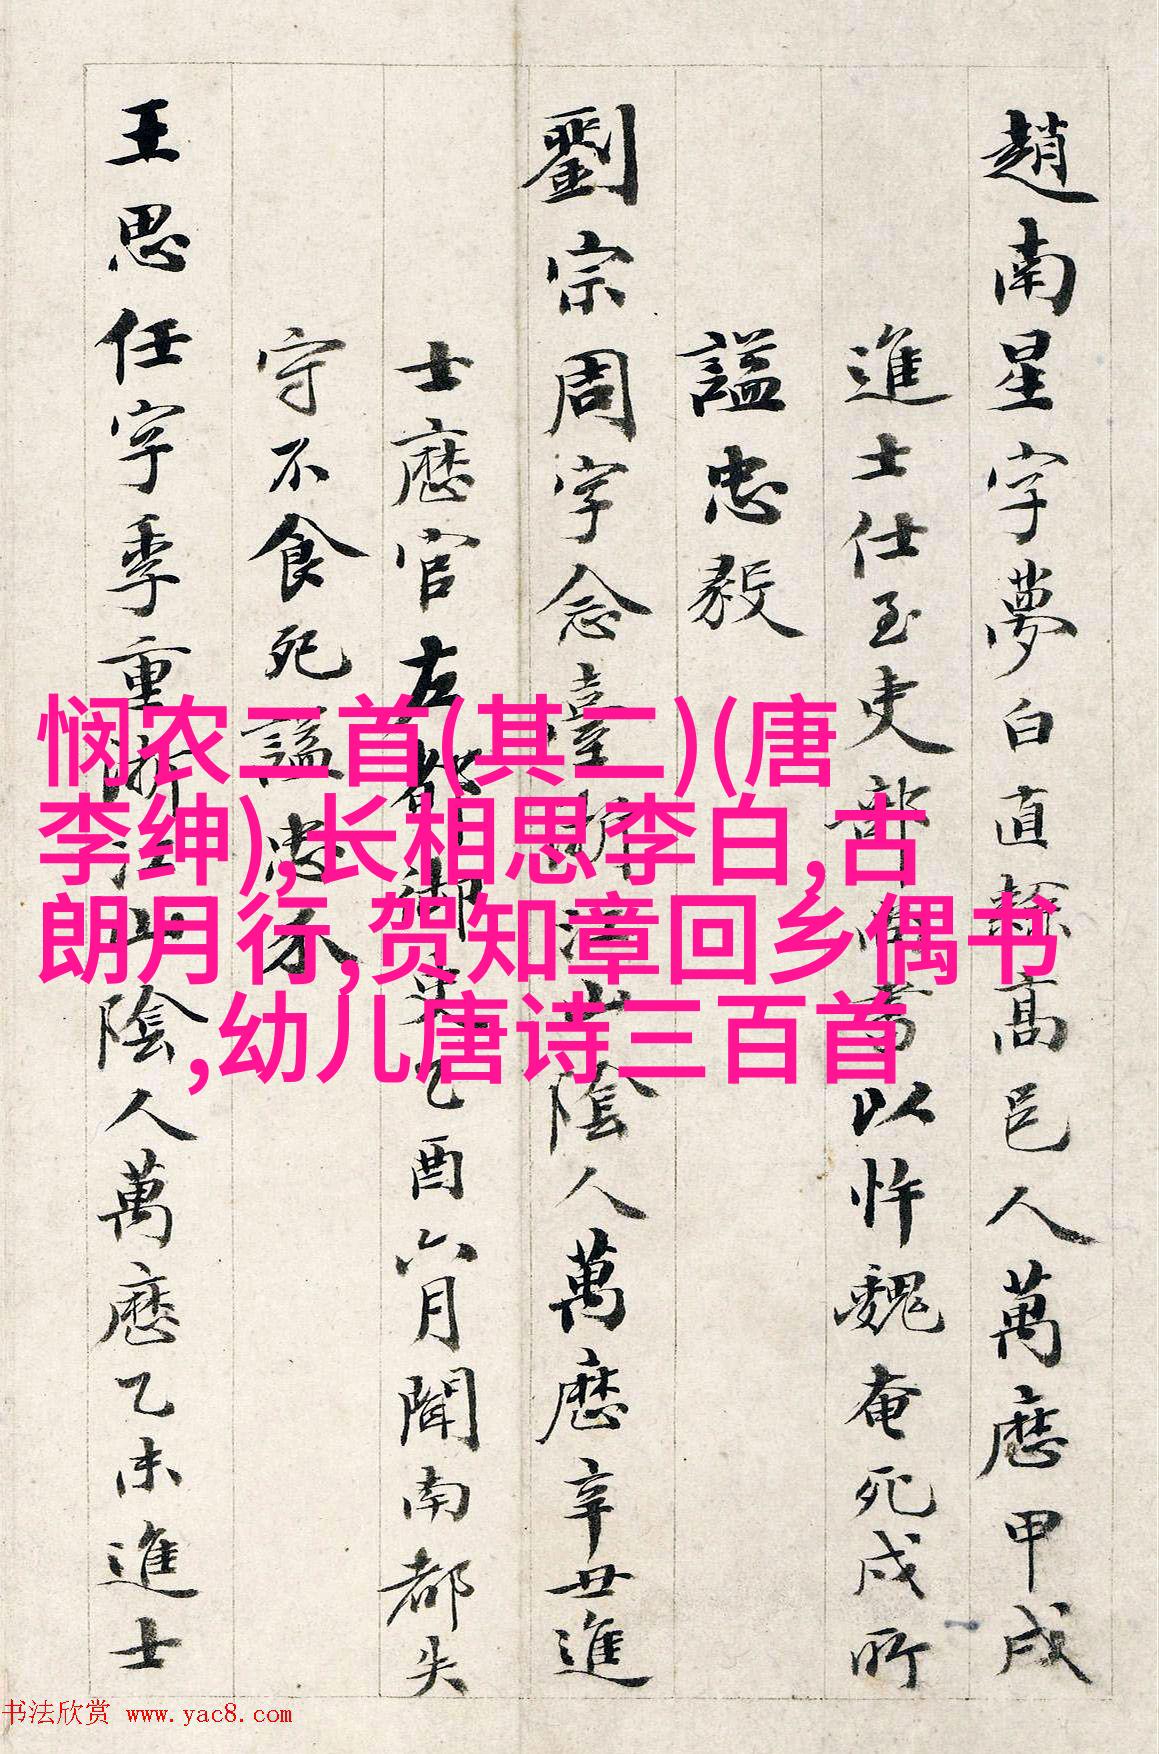 趙南星字夢白直隸高邑人萬曆甲戌
進士仕至吏部尚書以忤魏奄死戍所
謚忠毅
劉宗周字念臺浙江山陰人萬曆辛丑進
士歷官左都御史乙酉六月聞南都失
守不食死謚忠
王思任字季重浙江山陰人萬曆乙未進士
悯农二首(其二)(唐
李绅),长相思李白,古
朗月行,贺知章回乡偶书
,幼儿唐诗三百首
书法欣赏 www.yac8.com